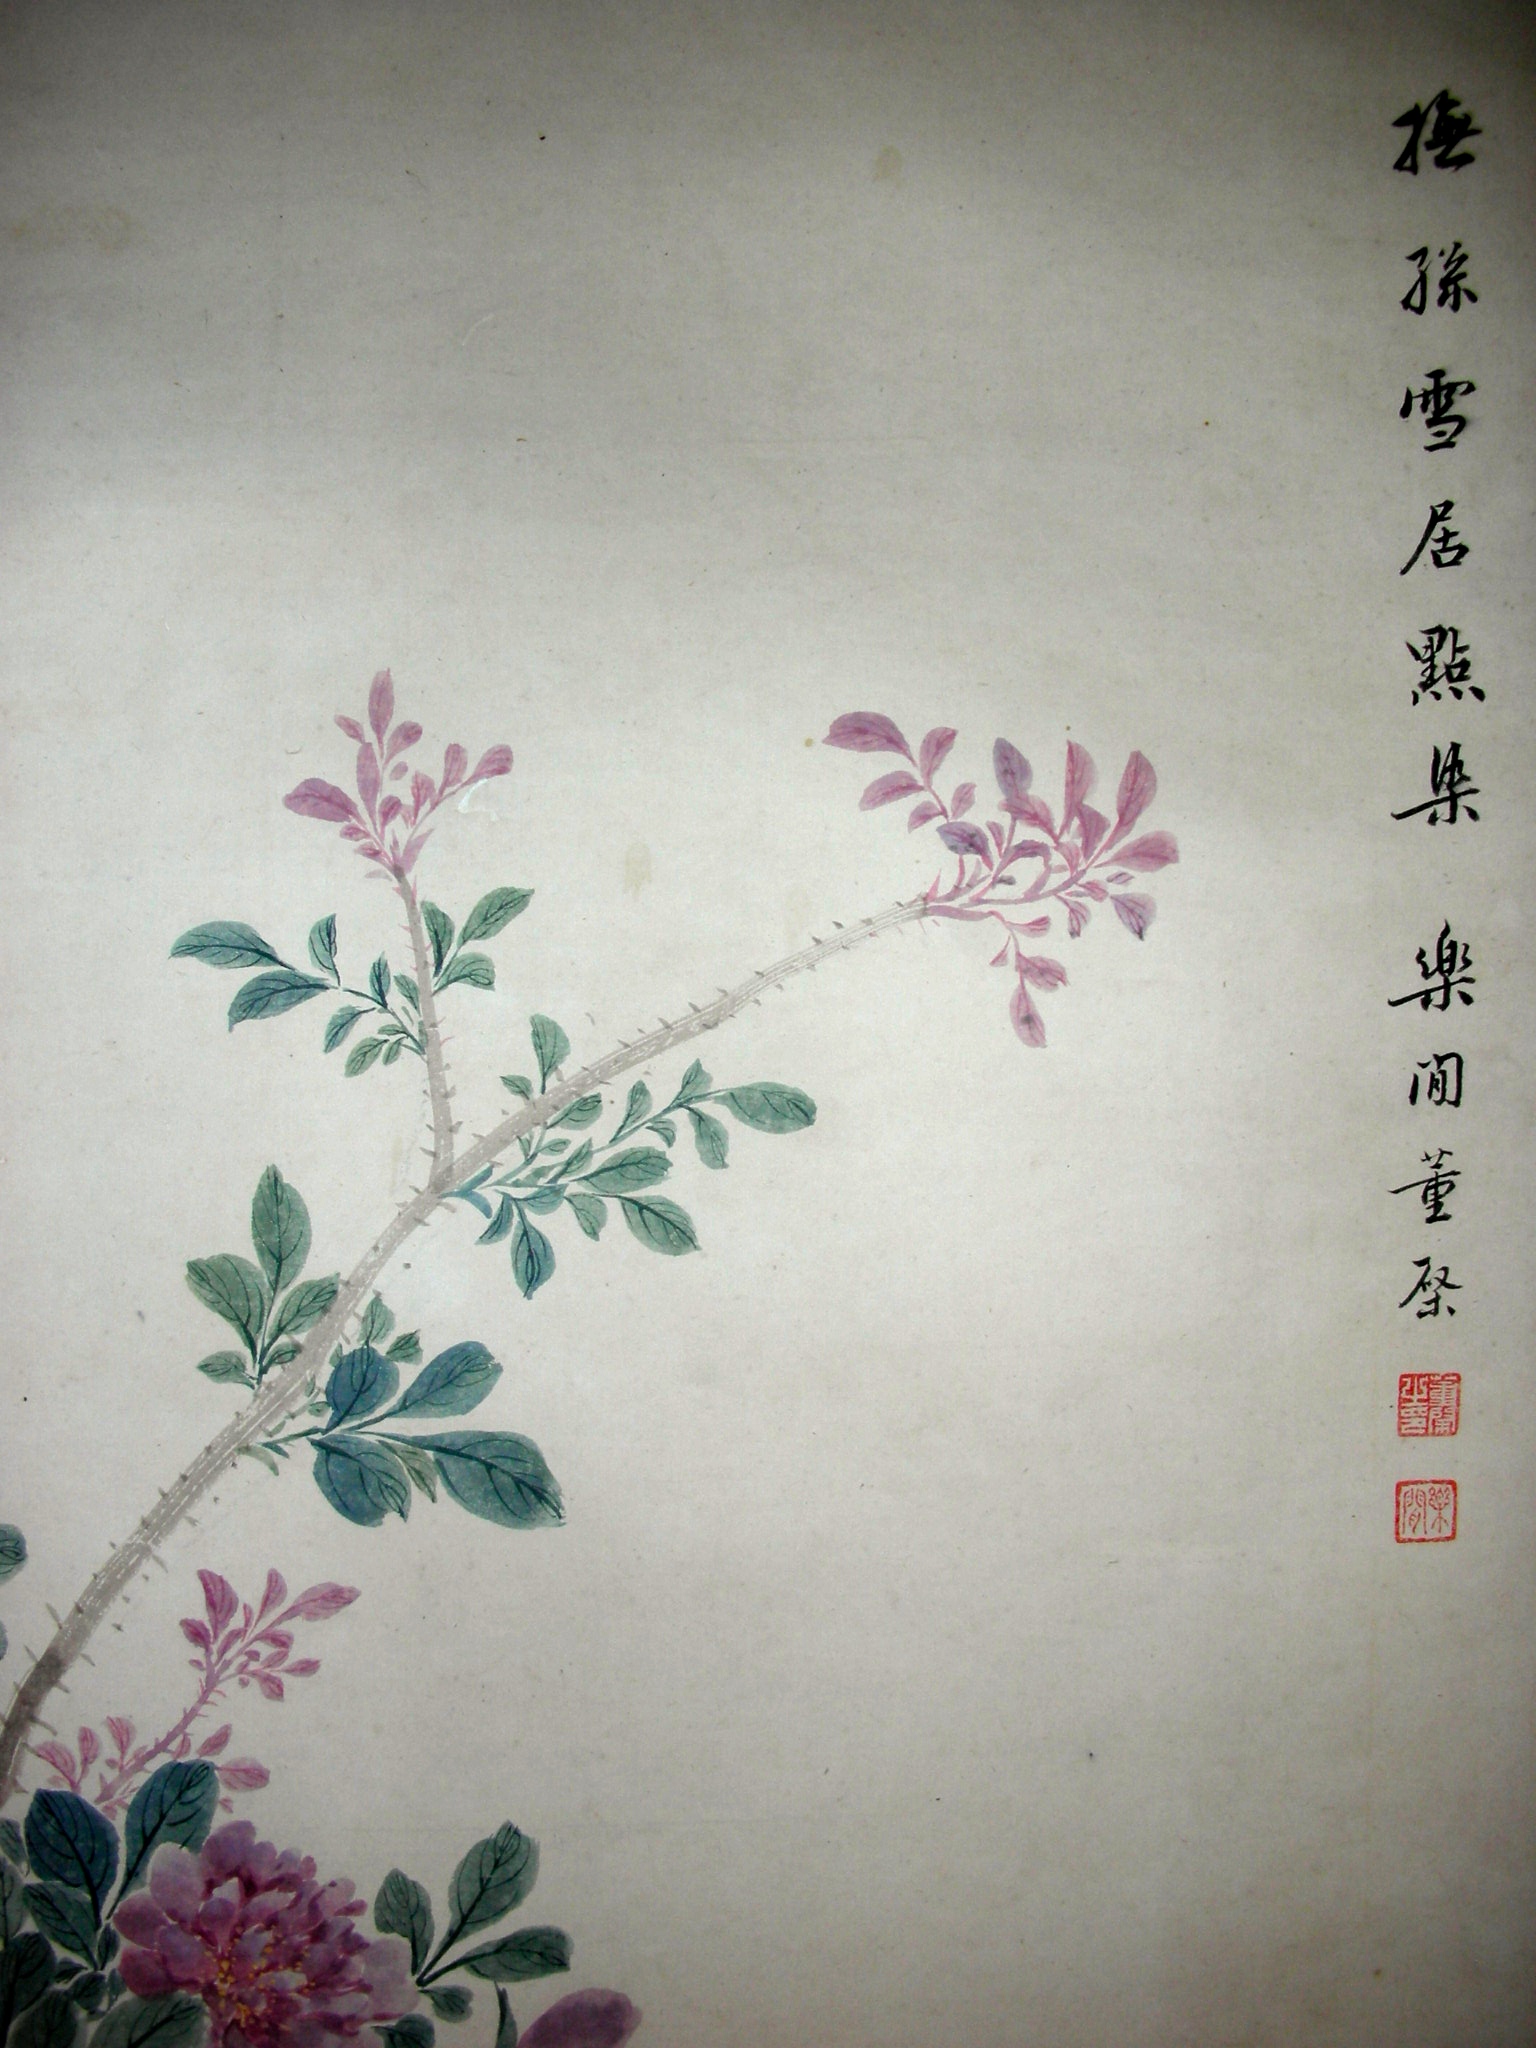 撫孫雪居點染 樂閒董棨
董棨之印
樂閒